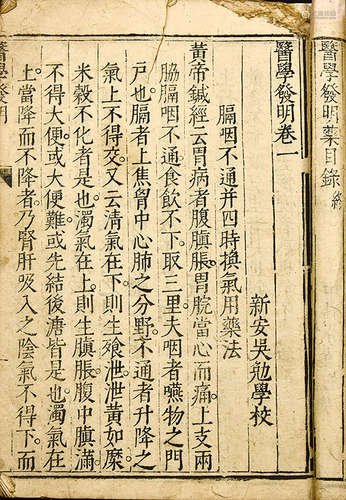 醫學發明藥目錄終
醫學發明卷一
新安吳勉學校
膈咽不通并四時換氣用藥法
黃帝鍼經云胃病者腹䐜脹胃脘當心而痛上支兩
脇膈咽不通食飲不下取三里夫咽者嚥物之門
戶也膈者上焦胷中心肺之分野不通者升降之
氣上不得交又云清氣在下則生飧泄泄黃如糜
米穀不化者是也濁氣在上則生䐜脹腹中䐜滿
不得大便或大便難或先結後溏皆是也濁氣在
上當降而不降者乃腎肝吸入之陰氣不得下而
醫學發明